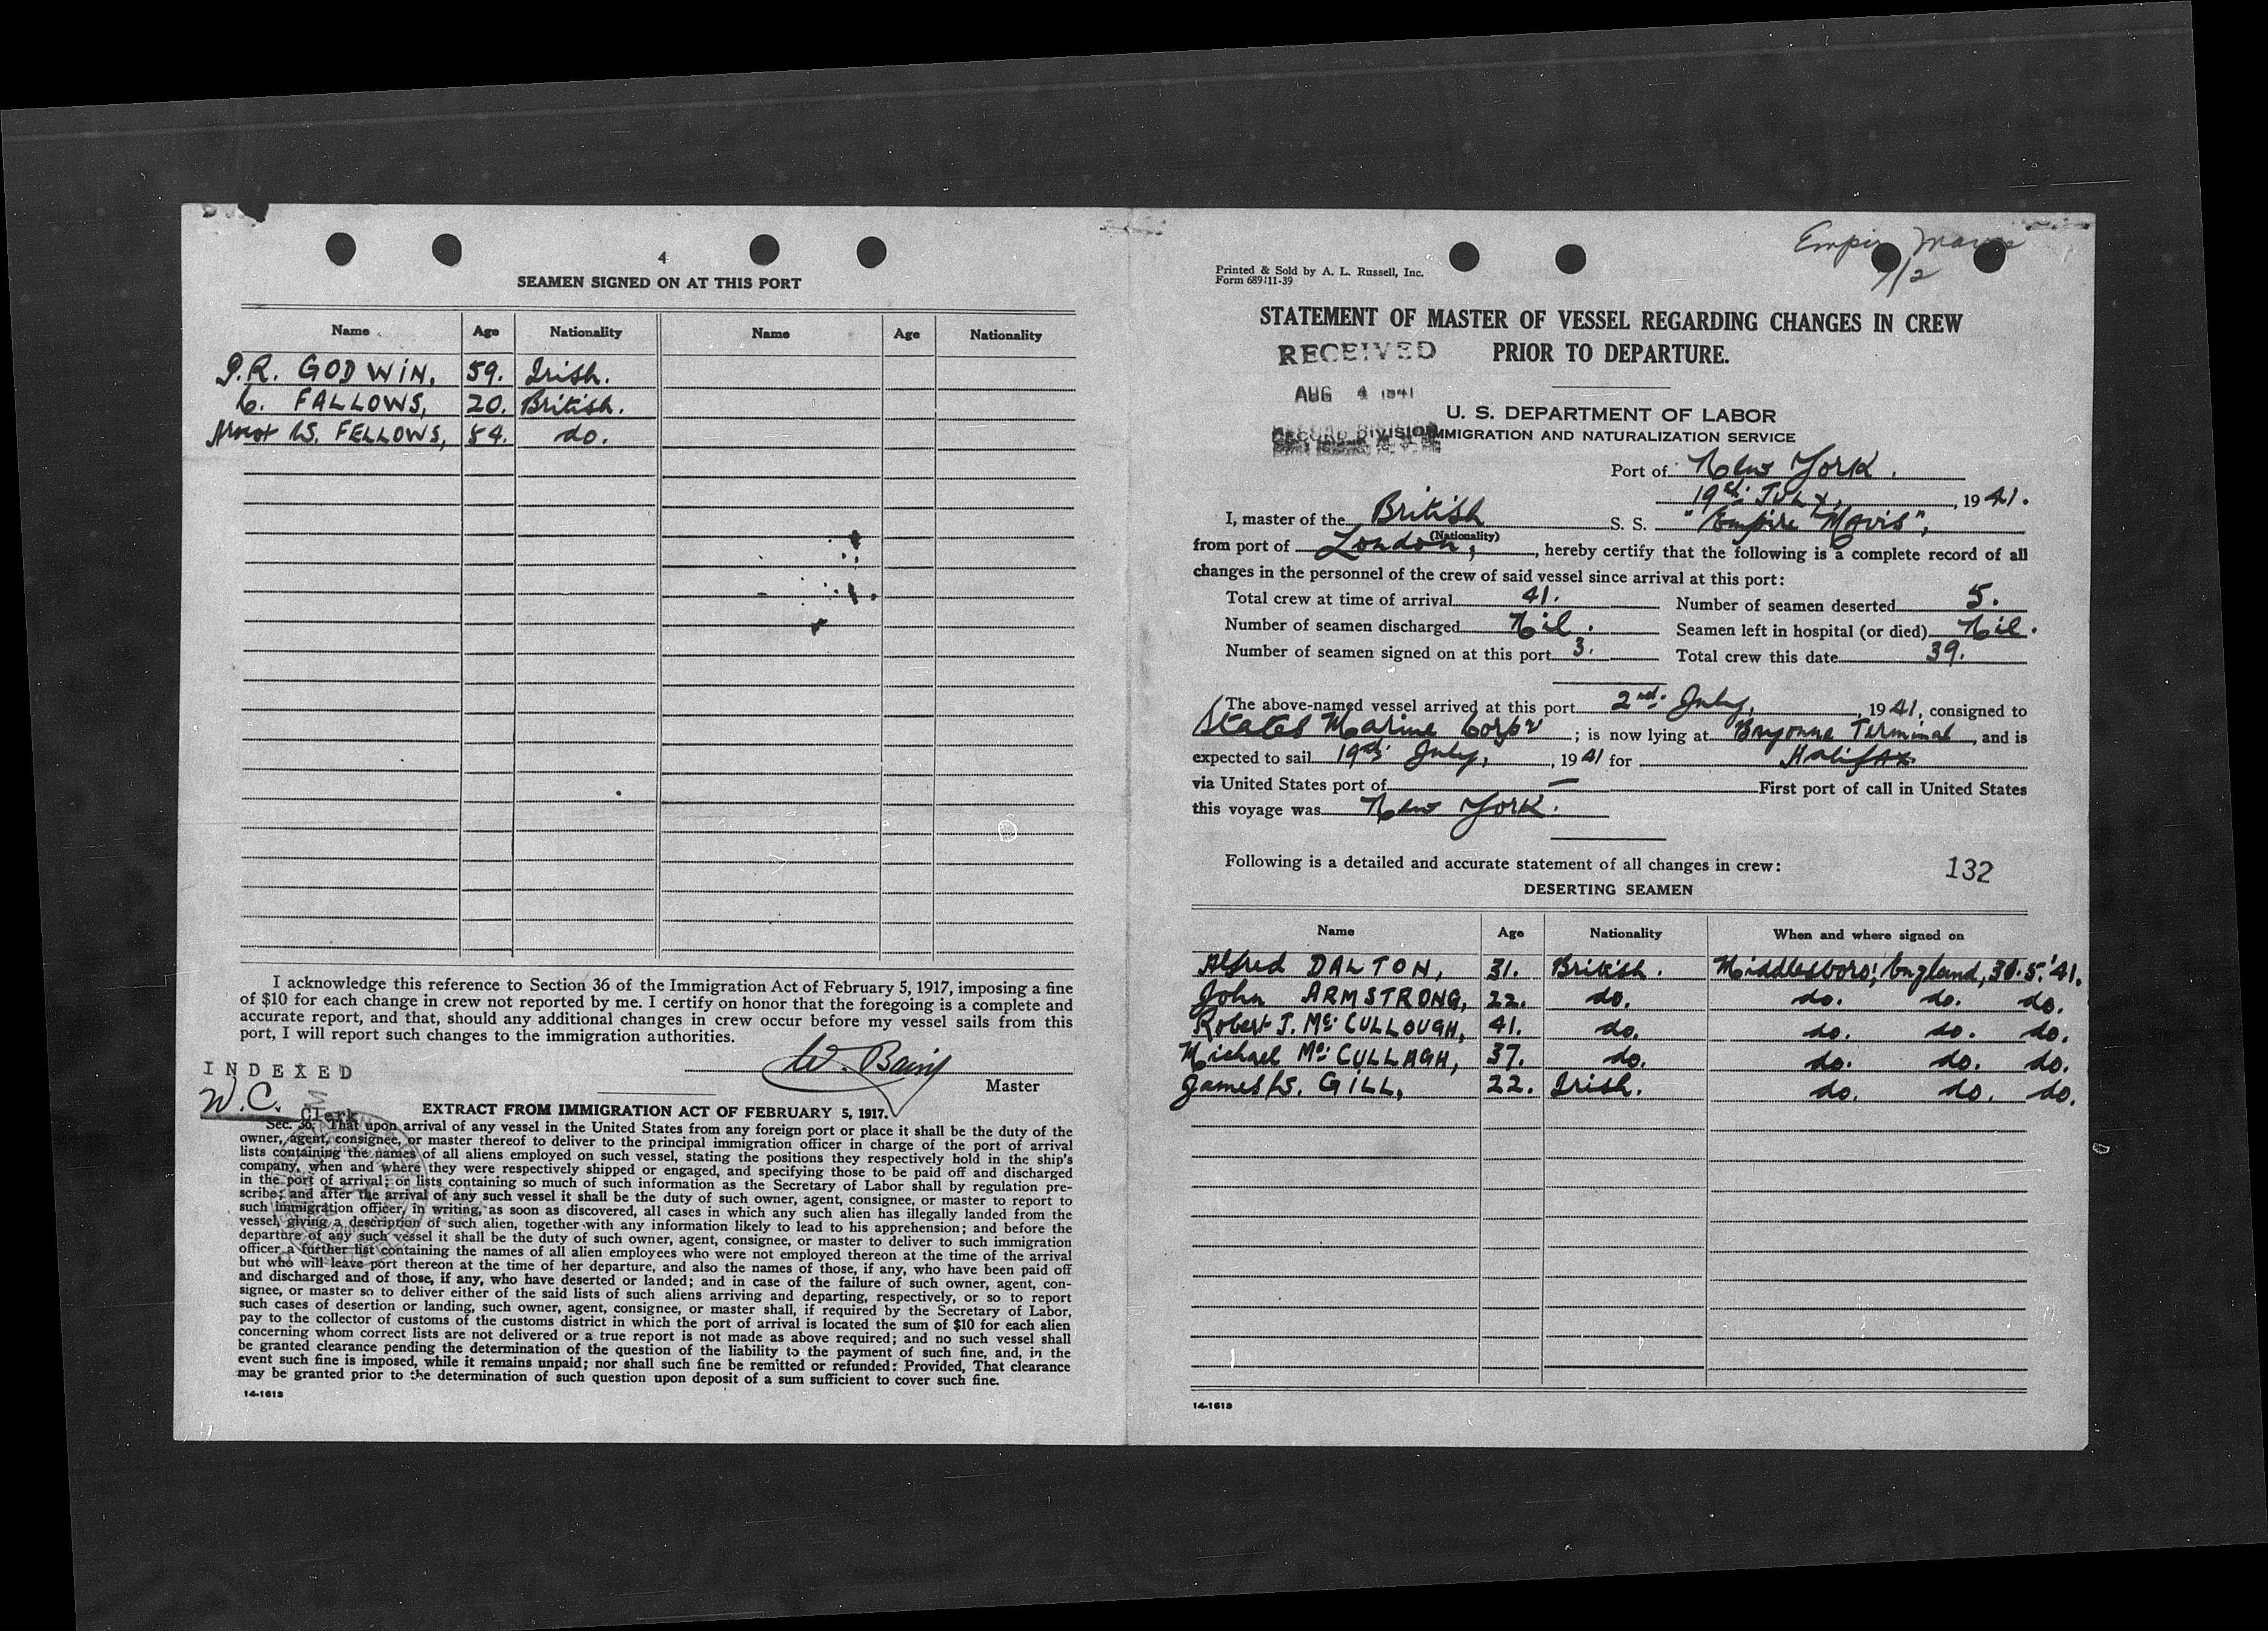 4
SEAMEN SIGNED ON AT THIS PORT
Name Age Nationality Name Age Nationality
GODWIN, 59. Irish.
FALLOWS, 20. British.
FELLOWS, 54. do.
I acknowledge this reference to Section 36 of the Immigration Act of February 5, 1917, imposing a fine
of $10 for each change in crew not reported by me. I certify on honor that the foregoing is a complete and
accurate report, and that, should any additional changes in crew occur before my vessel sails from this
port, I will report such changes to the immigration authorities.
INDEXED
W.
Master
W.C. Clerk
EXTRACT FROM IMMIGRATION ACT OF FEBRUARY 5, 1917.
Sec. 36. That upon arrival of any vessel in the United States from any foreign port or place it shall be the duty of the
owner, agent, consignee, or master thereof to deliver to the principal immigration officer in charge of the port of arrival
lists containing the names of all aliens employed on such vessel, stating the positions they respectively hold in the ship's
company, when and where they were respectively shipped or engaged, and specifying those to be paid off and discharged
in the port of arrival; or lists containing so much of such information as the Secretary of Labor shall by regulation pre-
scribe; and after the arrival of any such vessel it shall be the duty of such owner, agent, consignee, or master to report to
such immigration officer, in writing, as soon as discovered, all cases in which any such alien has illegally landed from the
vessel, giving a description of such alien, together with any information likely to lead to his apprehension; and before the
departure of any such vessel it shall be the duty of such owner, agent, consignee, or master to deliver to such immigration
officer a further list containing the names of all alien employees who were not employed thereon at the time of the arrival
but who will leave port thereon at the time of her departure, and also the names of those, if any, who have been paid off
and discharged and of those, if any, who have deserted or landed; and in case of the failure of such owner, agent, con-
signee, or master so to deliver either of the said lists of such aliens arriving and departing, respectively, or so to report
such cases of desertion or landing, such owner, agent, consignee, or master shall, if required by the Secretary of Labor,
pay to the collector of customs of the customs district in which the port of arrival is located the sum of $10 for each alien
concerning whom correct lists are not delivered or a true report is not made as above required; and no such vessel shall
be granted clearance pending the determination of the question of the liability to the payment of such fine, and, in the
event such fine is imposed, while it remains unpaid; nor shall such fine be remitted or refunded: Provided, That clearance
may be granted prior to the determination of such question upon deposit of a sum sufficient to cover such fine.
14-1613
Empire Mavis
7/2
Printed & Sold by A. L. Russell, Inc.
Form 689:11-39
STATEMENT OF MASTER OF VESSEL REGARDING CHANGES IN CREW
PRIOR TO DEPARTURE.
RECEIVED
AUG 4 1941
RECORD DIVISION
U. S. DEPARTMENT OF LABOR
IMMIGRATION AND NATURALIZATION SERVICE
Port of New York.
19th JULY, 1941.
I, master of the British S. S. "Empire Mavis",
(Nationality)
from port of London, hereby certify that the following is a complete record of all
changes in the personnel of the crew of said vessel since arrival at this port:
Total crew at time of arrival 41. Number of seamen deserted 5.
Number of seamen discharged Nil. Seamen left in hospital (or died) Nil.
Number of seamen signed on at this port 3. Total crew this date 39.
The above-named vessel arrived at this port 2nd. July, 1941, consigned to
States Marine Corpn; is now lying at Bayonne Terminal, and is
expected to sail 19th July, 1941 for Halifax
via United States port of — First port of call in United States
this voyage was New York.
Following is a detailed and accurate statement of all changes in crew:
132
DESERTING SEAMEN
Name Age Nationality When and where signed on
Alfred DALTON, 31. British. Middlesboro', England, 30.5.'41.
John ARMSTRONG, 22. do. do. do. do.
Robert J. McCULLOUGH, 41. do. do. do. do.
Michael McCULLAGH, 37. do. do. do. do.
James GILL, 22. Irish. do. do. do.
14-1613